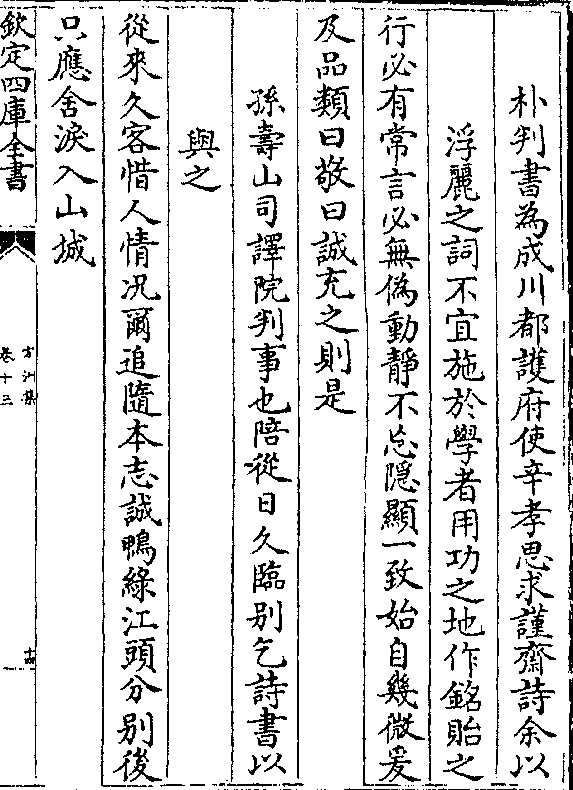 朴判書為成川都護府使辛孝思求謹齋詩余以
浮麗之詞不宜施於學者用功之地作銘貽之
行必有常言必無偽動靜不忘隱顯一致始自幾微爰
及品類曰敬曰誠充之則是
孫壽山司譯院判事也陪從日久臨别乞詩書以
與之
從來久客惜人情况爾追隨本志誠鴨綠江頭分别後
只應含淚入山城
欽定四庫全書
方洲集
卷十三
十四